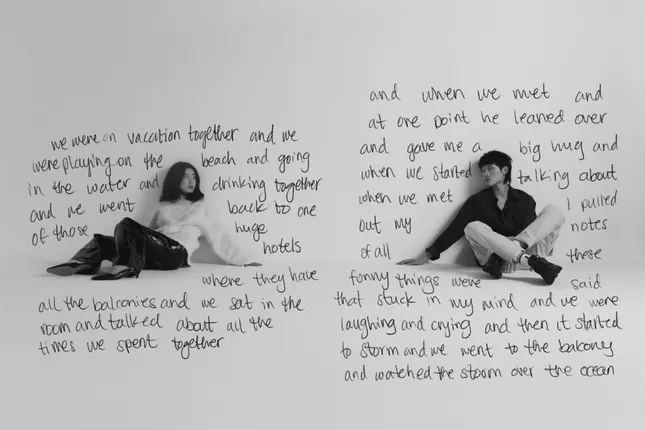 we were on vacation together and we
were playing on the beach and going
in the water and drinking together
and we went back to one
of those huge
hotels
where they have
all the balconies and we sat in the
room and talked about all the
times we spent together
and when we met and
at one point he leaned over
and gave me a big hug and
when we started talking about
when we met I pulled
out my notes
of all these
funny things we've said
that stuck in my mind and we were
laughing and crying and then it started
to storm and we went to the balcony
and watched the storm over the ocean